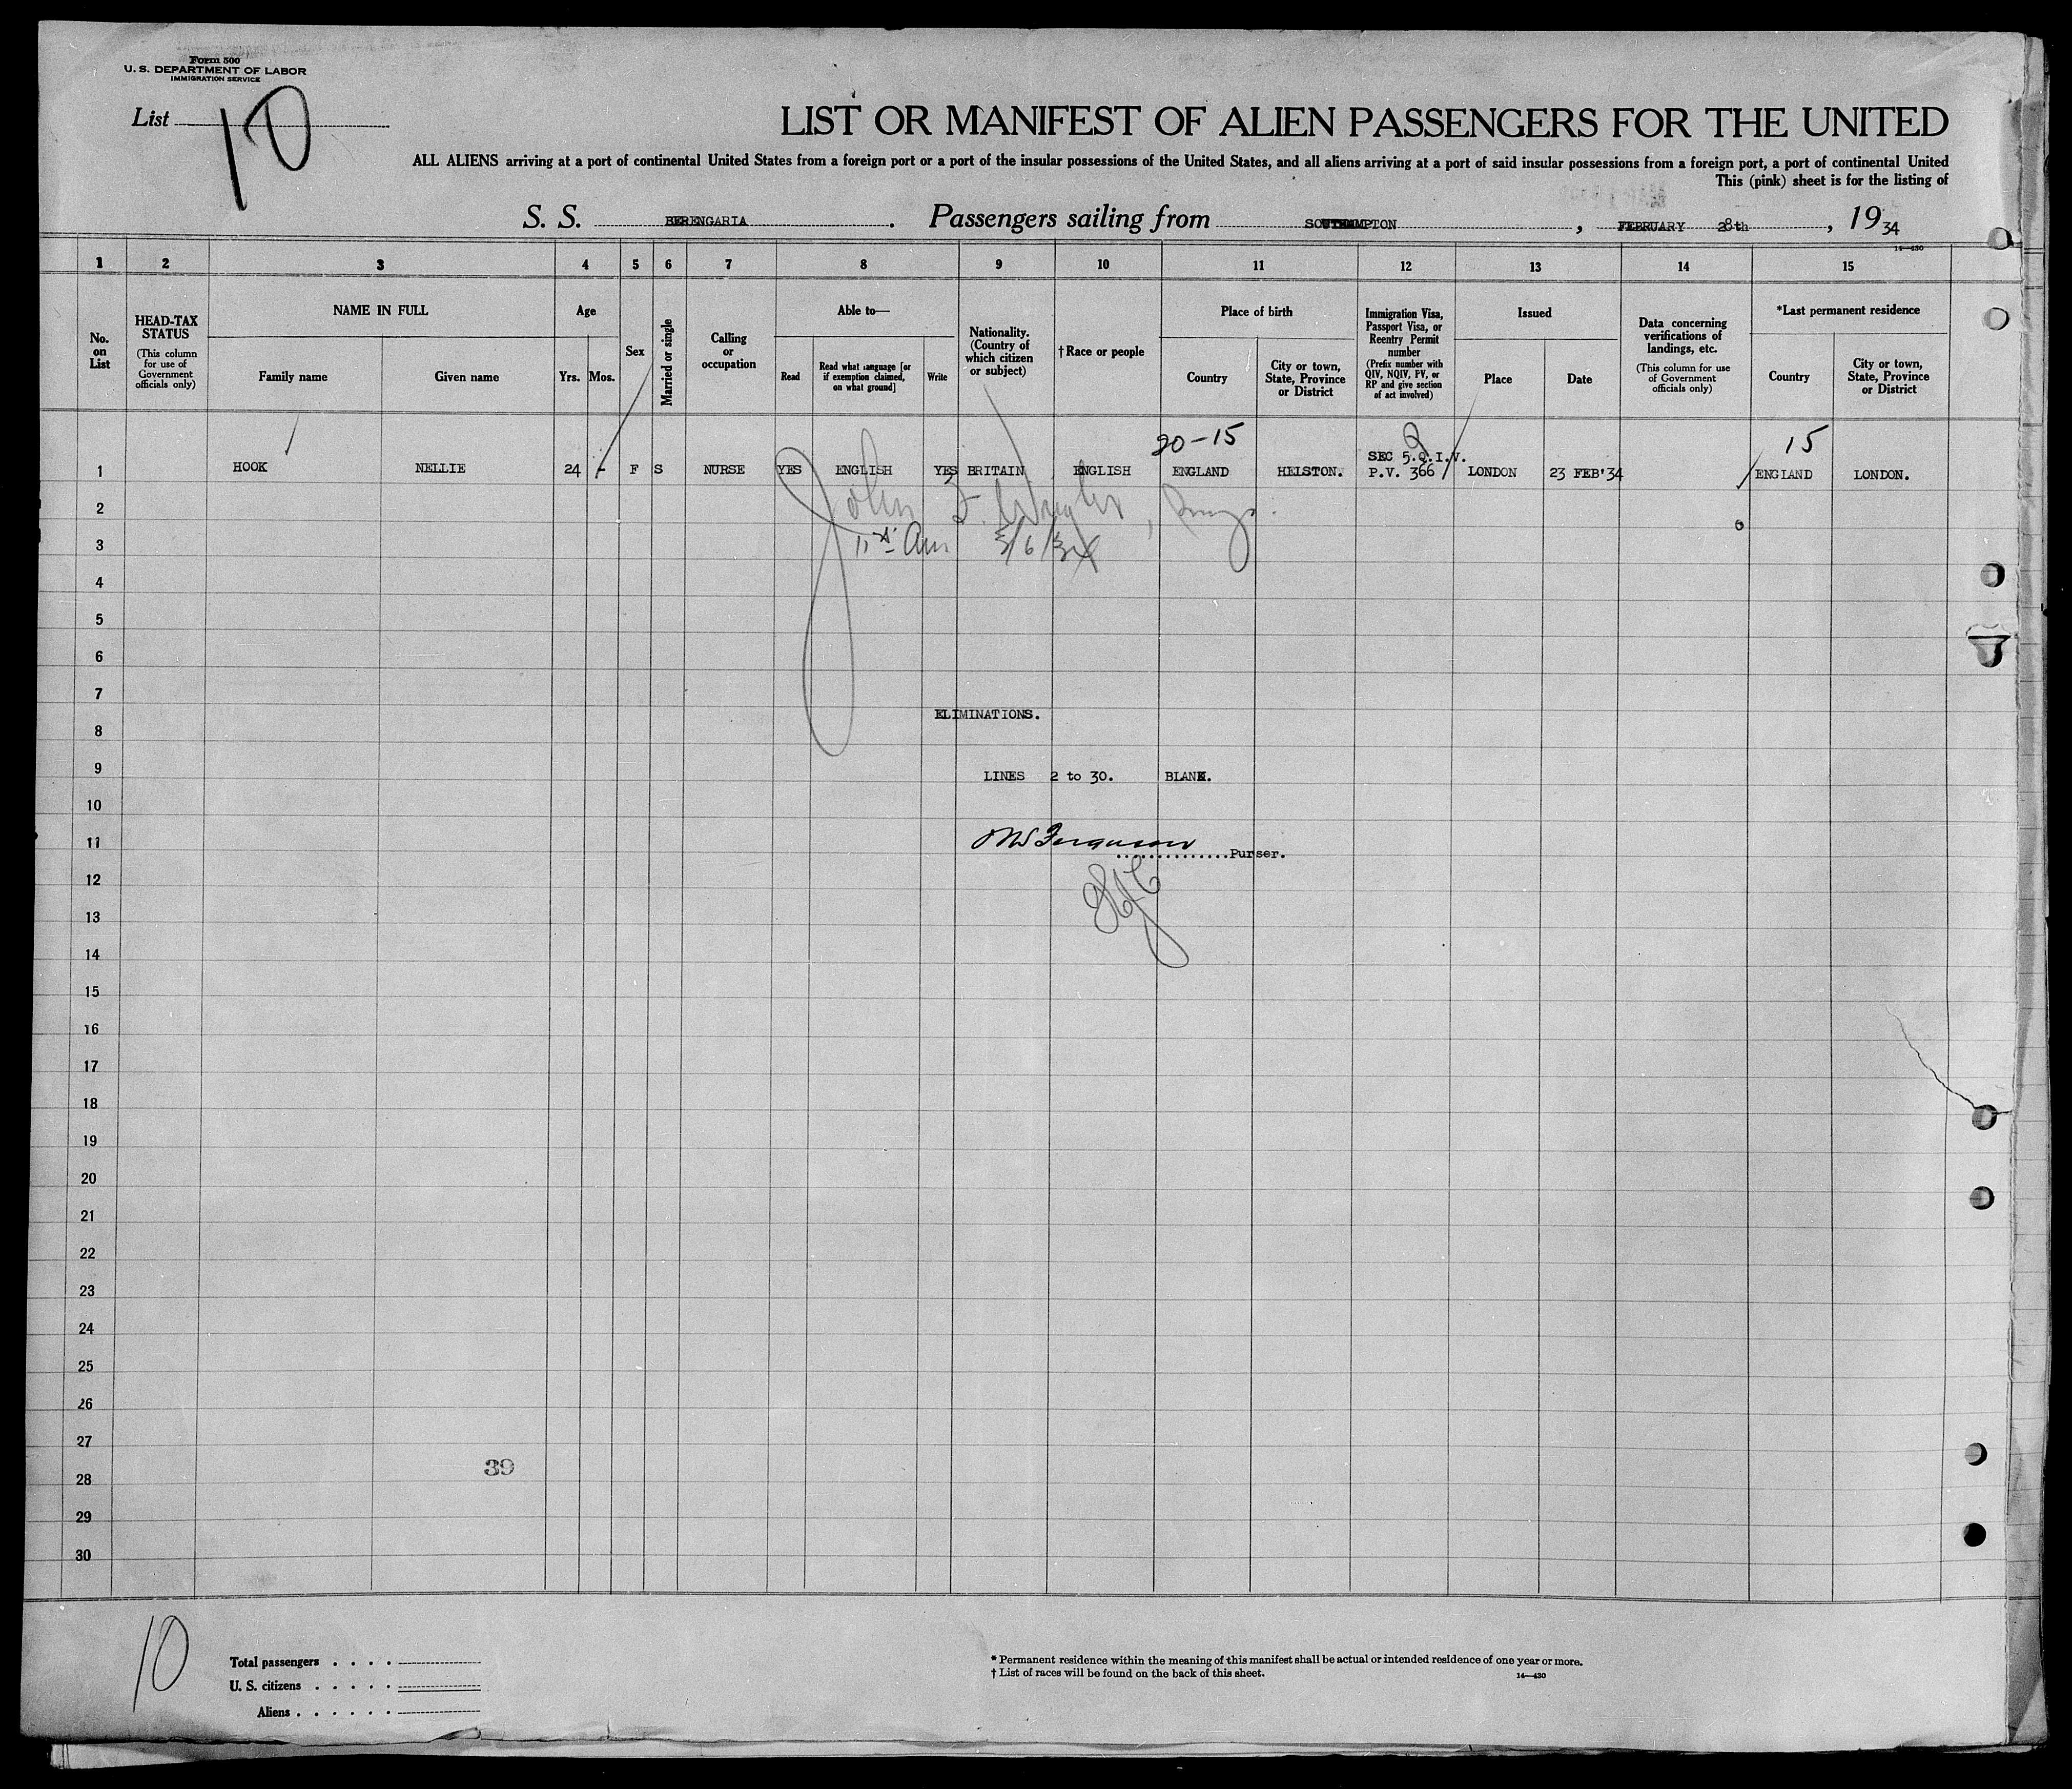 Form 500
U. S. DEPARTMENT OF LABOR
IMMIGRATION SERVICE
List 10
LIST OR MANIFEST OF ALIEN PASSENGERS FOR THE UNITED
ALL ALIENS arriving at a port of continental United States from a foreign port or a port of the insular possessions of the United States, and all aliens arriving at a port of said insular possessions from a foreign port, a port of continental United
This (pink) sheet is for the listing of
S. S. BERENGARIA. Passengers sailing from SOUTHAMPTON, FEBRUARY 28th, 1934
14—430
1 2 3 4 5 6 7 8 9 10 11 12 13 14 15
No. on List
HEAD-TAX STATUS
(This column for use of Government officials only)
NAME IN FULL
Family name Given name
Age
Yrs. Mos.
Sex
Married or single
Calling or occupation
Able to—
Read
Read what language [or if exemption claimed, on what ground]
Write
Nationality. (Country of which citizen or subject)
† Race or people
Place of birth
Country
City or town, State, Province or District
Immigration Visa, Passport Visa, or Reentry Permit number
(Prefix number with QIV, NQIV, PV, or RP and give section of act involved)
Issued
Place Date
Data concerning verifications of landings, etc.
(This column for use of Government officials only)
*Last permanent residence
Country
City or town, State, Province or District
20-15
15
SEC 5.Q.I.V.
1 HOOK NELLIE 24 - F S NURSE YES ENGLISH YES BRITAIN ENGLISH ENGLAND HELSTON. P.V. 366 LONDON 23 FEB'34 ENGLAND LONDON.
2
3 3/6/34
4
5
6
7
ELIMINATIONS.
8
9 LINES 2 to 30. BLANK.
10
11
Ferguson Purser.
12
13
14
15
16
17
18
19
20
21
22
23
24
25
26
27
39
28
29
30
10
Total passengers
U. S. citizens
Aliens
* Permanent residence within the meaning of this manifest shall be actual or intended residence of one year or more.
† List of races will be found on the back of this sheet.
14—430